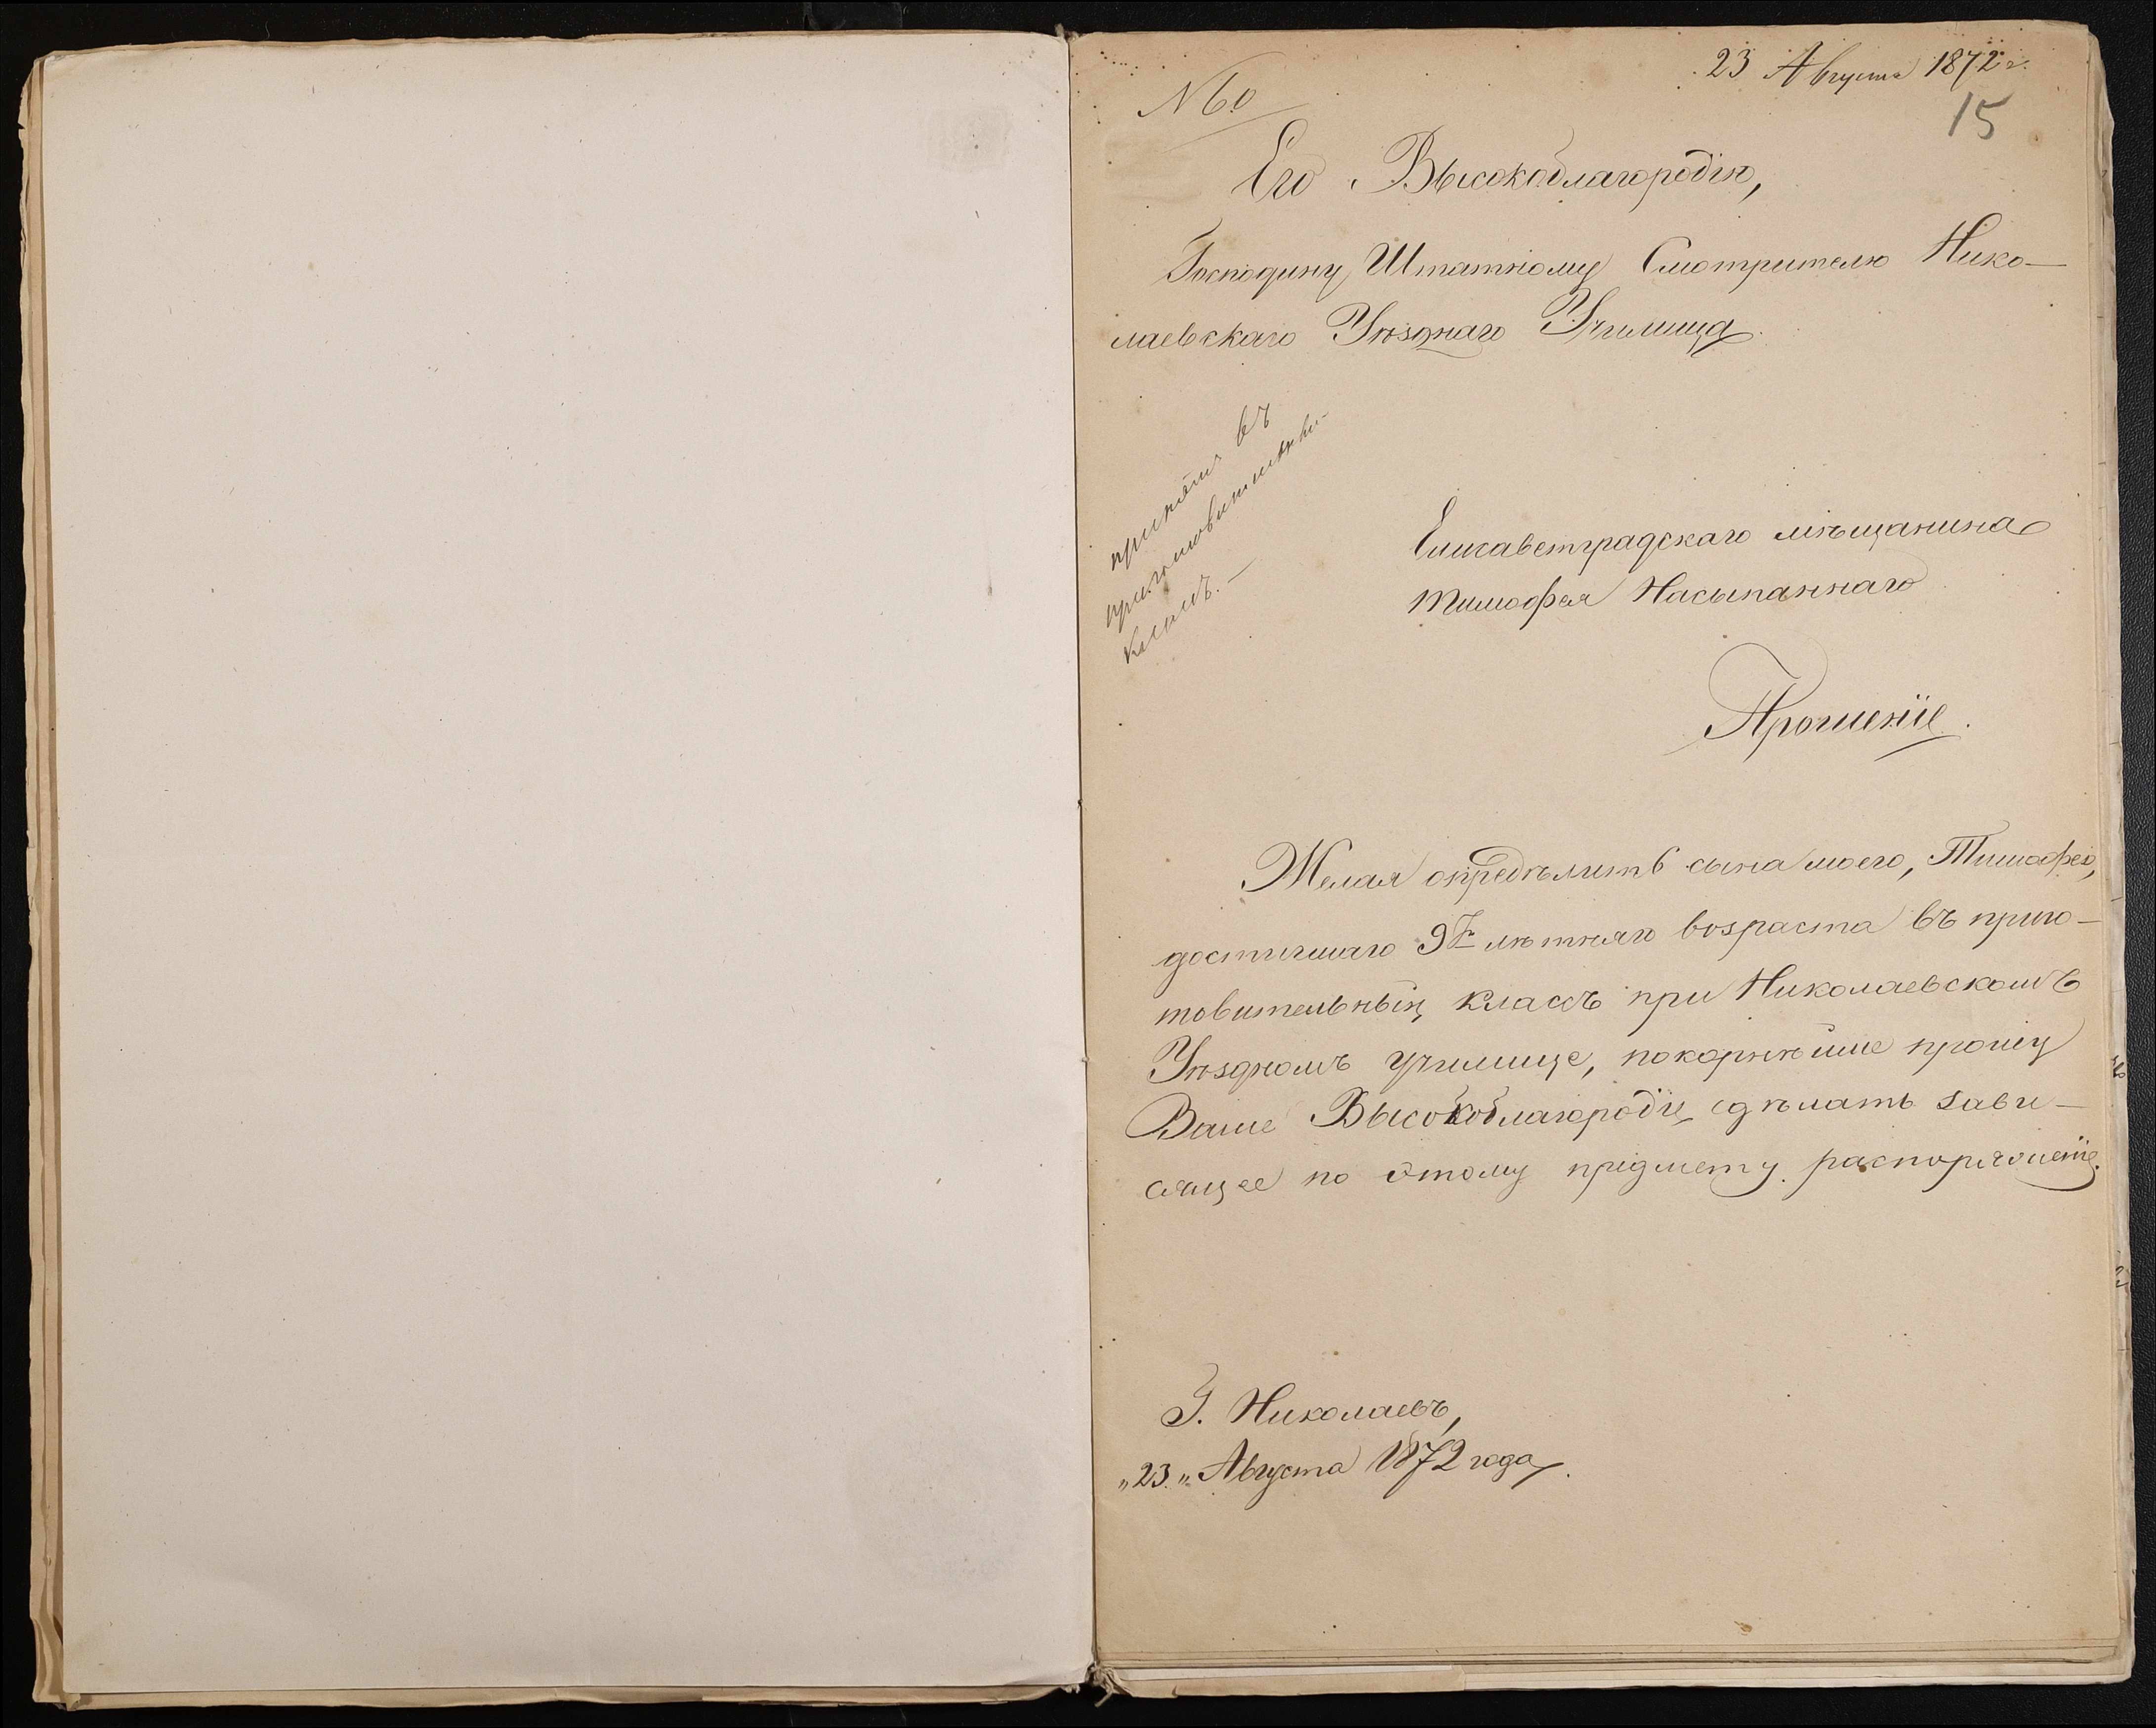 23 Августа 1872 г.
15
Его Высокоблагородію,
Господину Штатному Смотрителю Нико-
лаевскаго Уѣзднаго Училища.
принятъ въ
приготовительный
классъ. –
Елисаветградскаго мѣщанина
Тимофея Насыпаннаго
Прошеніе.
Желая опредѣлить сына моего, Тимофея,
достигшаго 9ти лѣтняго возраста въ приго-
товительный классъ при Николаевскомъ
Уѣздномъ училище, покорнѣйше прошу
Ваше Высокоблагородіе сдѣлать зави-
сящее по этому предмету распоряженіе.
Г. Николаевъ,
„23„ Августа 1872 года.